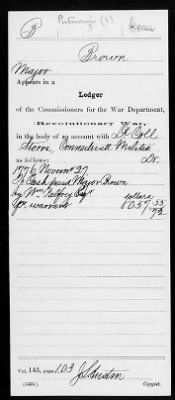 B Putnam's (3) Conn
Brown
Major
Appears in a
Ledger
of the Commissioners for the War Department,
Revolutionary War,
in the body of an account with Lt Coll
Storrs, Connecticutt Militia
Dr.
as follows:
1776 Novemr 27
To Cash paid Major Brown
by Wm Palfrey Esqr
dollars
Vol. 143, page 103
J S
Copyist.